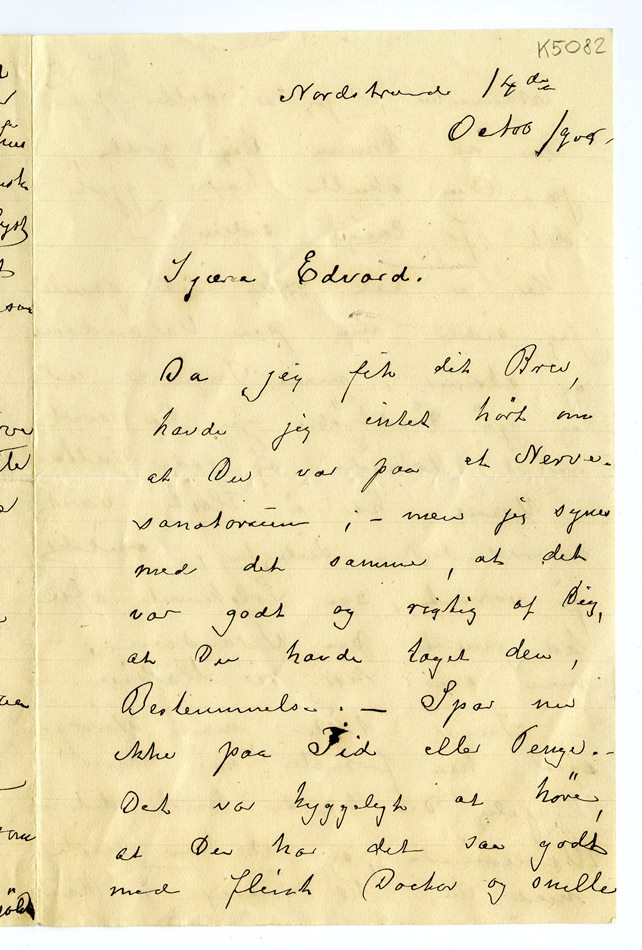 K5082
Nordstrand 14de
Octob 1908.
Kjære Edvard.
Da jeg fik dit Brev,
havde jeg intet hört om
at Du var paa et Nerve-
sanatorium; – men jeg synes
med det samme, at det
var godt og rigtig af Dig,
at Du havde taget den,
Bestemmelse. – Spar nu
ikke paa Tid eller Penge. –
Det var hyggeligt at höre,
at Du har det saa godt
med flink Doctor og snille